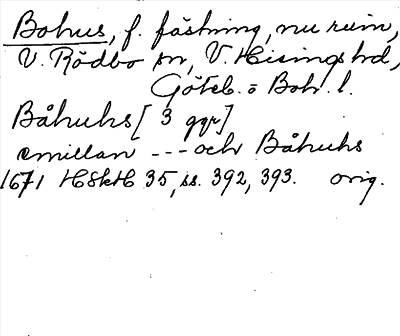 Bohus, f. fästning, nu ruin,
V. Rödbo sn, V. Hisings hd,
Göteb. o Boh. l.
Båhuhs [3 ggr]
emillan --- och Båhuhs
1671 HSkH 35, ss. 392, 393. orig.